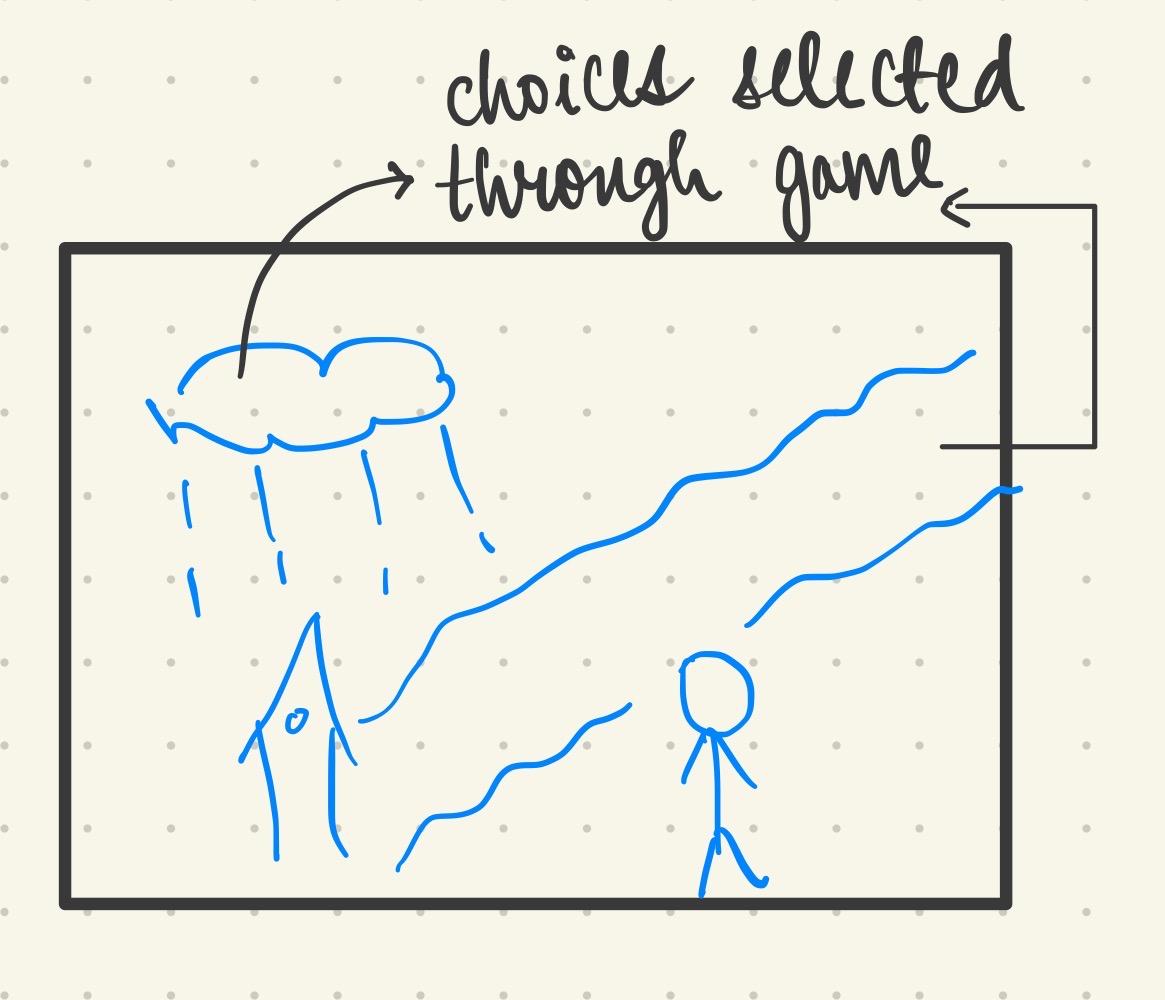 choices selected
through game